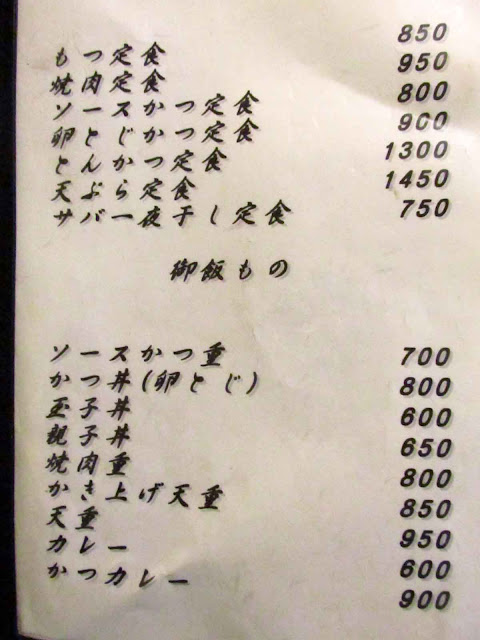 もつ定食 850
焼肉定食 950
ソースかつ定食 800
卵とじかつ定食 900
とんかつ定食 1300
天ぷら定食 1450
サバ一夜干し定食 750
御飯もの
ソースかつ重 700
かつ丼(卵とじ) 800
玉子丼 600
親子丼 650
焼肉重 800
かき上げ天重 850
天重 950
カレー 600
かつカレー 900